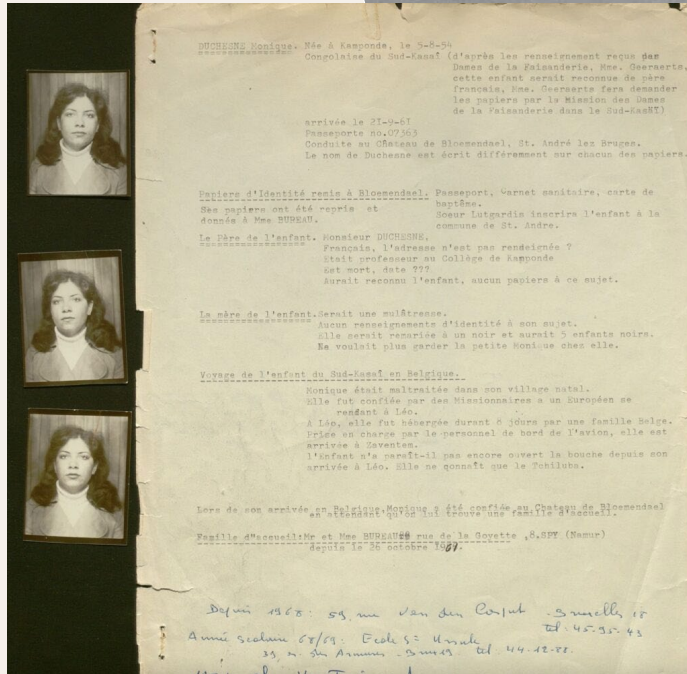 DUCHESNE Monique. Née à Kamponde, le 5-8-54
Congolaise du Sud-Kasaï (d'après les renseignement reçus des
Dames de la Faisanderie, Mme. Geeraerts,
cette enfant serait reconnue de père
français, Mme. Geeraerts fera demander
les papiers par la Mission des Dames
de la Faisanderie dans le Sud-KasNT)
arrivée le 21-9-61
Passeporte no.07363
Conduite au Château de Bloemendael, St. André lez Bruges.
Le nom de Duchesne est écrit différemment sur chacun des papiers.
Papiers d'Identité remis à Bloemendael. Passeport, Carnet sanitaire, carte de
baptême.
Ses papiers ont été repris et
donnés à Mme BUREAU.
Soeur Lutgardis inscrira l'enfant à la
commune de St. Andre.
Le Père de l'enfant. Monsieur DUCHESNE,
Français, l'adresse n'est pas renseignée ?
Etait professeur au Collège de Kamponde
Est mort, date ???
Aurait reconnu l'enfant, aucun papiers à ce sujet.
La mère de l'enfant. Serait une mulâtresse.
Aucun renseignements d'identité à son sujet.
Elle serait remariée à un noir et aurait 5 enfants noirs.
Ne voulait plus garder la petite Monique chez elle.
Voyage de l'enfant du Sud-Kasaï en Belgique.
Monique était maltraitée dans son village natal.
Elle fut confiée par des Missionnaires a un Européen se
rendant à Léo.
A Léo, elle fut hébergée durant 8 jours par une famille Belge.
Price en charge par le personnel de bord de l'avion, elle est
arrivée à Zaventem.
l'Enfant n'a parêit-il pas encore ouvert la bouche depuis son
arrivée à Léo. Elle ne qonnaît que le Tchiluba.
Lors de son arrivée en Belgique,Monique a été confiée au Chateau de Bloemendael
en attendant qu'on lui trouve une famille d'accueil.
Famille d"accueil:Mr et Mme BUREAU rue de la Goyette ,8.SPY (Namur)
depuis le 26 octobre 1961.
Depuis 1968: 59, rue Van den Corput - Bruxelles 18
tel: 45-95-43
Année scolaire 68/69: Ecole Ste Ursule
39, r. des Armures - Brux 19 tel. 44-12-28.